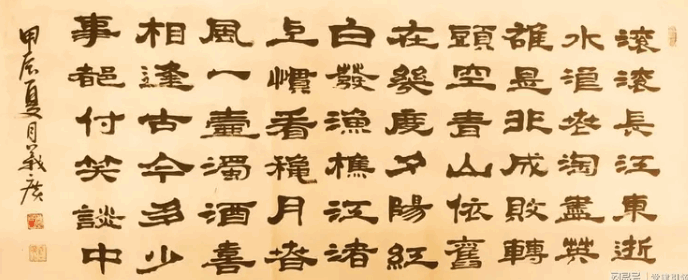 滚滚長江東逝
水浪花淘盡英
雄是非成敗轉
頭空青山依舊
在幾度夕陽紅
白發漁樵江渚
上慣看秋月春
風一壺濁酒喜
相逢古今多少
事都付笑談中
甲辰夏月義廣
网易号